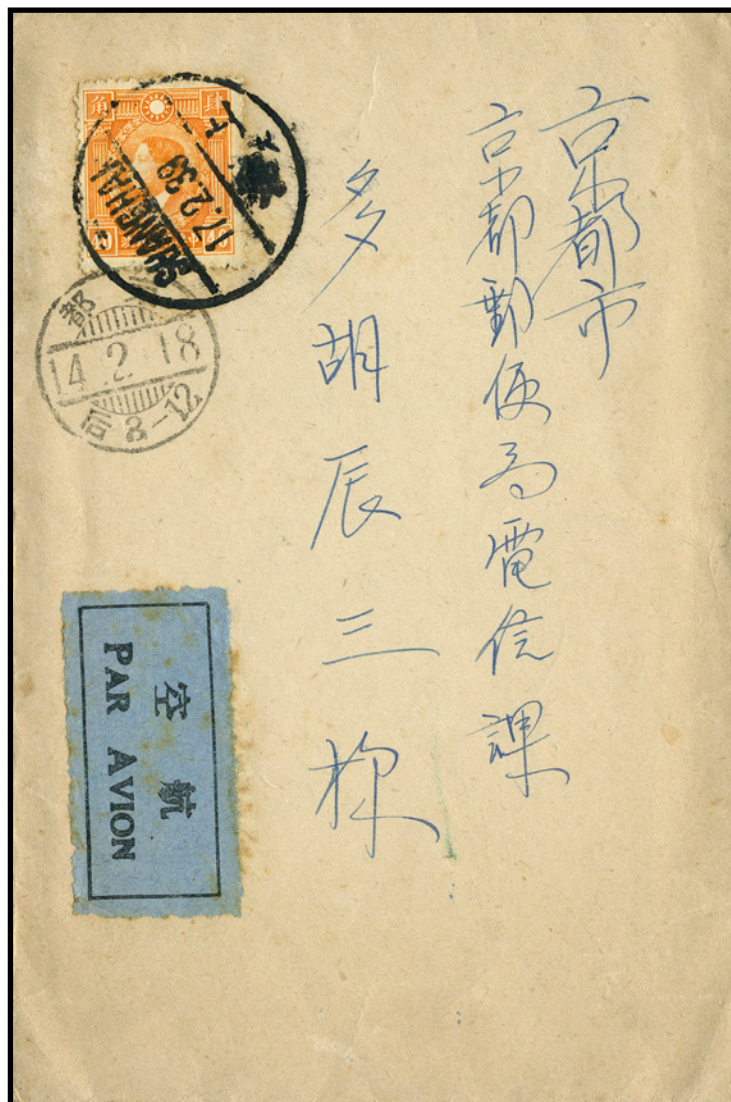 京都市
京都郵便局電信課
多胡辰三様
角 肆
40
上海
17.2.39
SHANGHAI
京都
14.2.18
后8-12
航空
PAR AVION